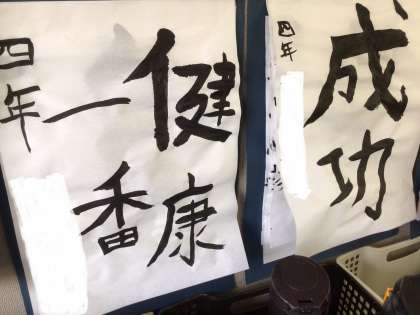 成功
四年
健康
一番
四年